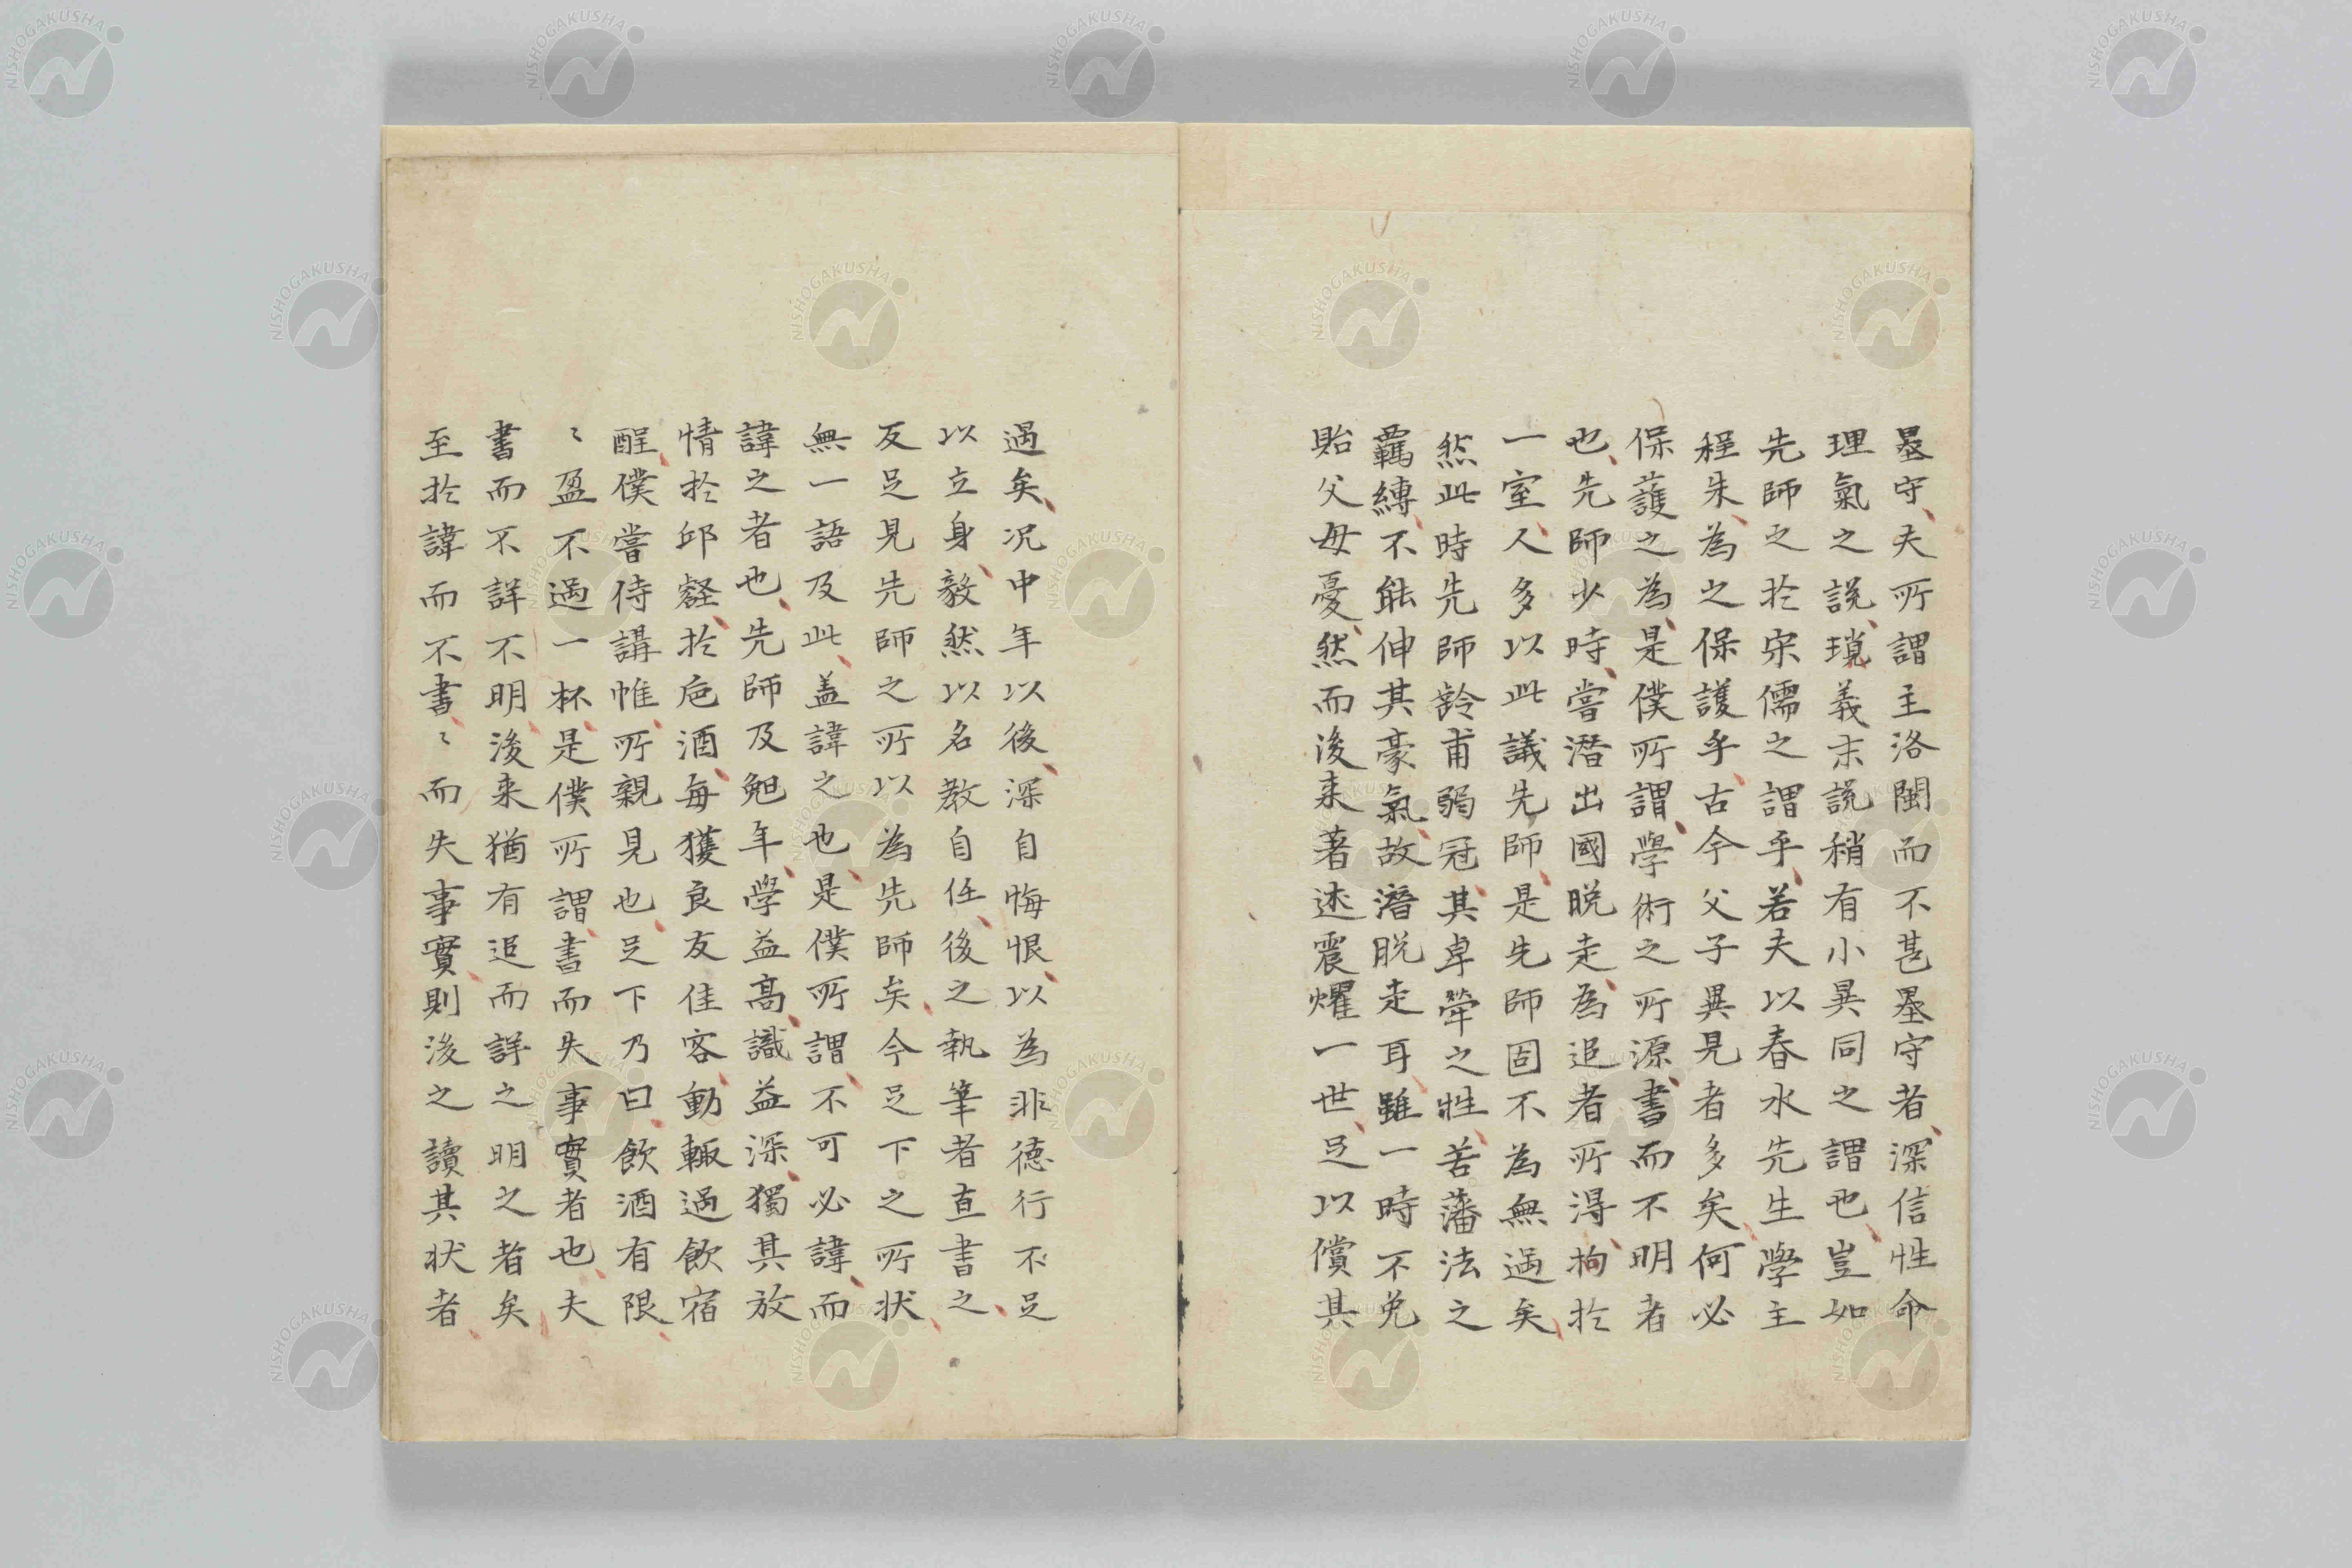 墨守夫所謂主洛閩而不甚墨守者深信性命
理氣之説瑣義末説稍有小異同之謂也豈如
先師之於宋儒之謂乎若夫以春水先生學主
程朱為之保護乎古今父子異見者多矣何必
保護之為是僕所謂學術之所源書而不明者
也先師少時嘗潜出國脱走為追者所得拘於
一室人多以此議先師是先師固不為無過矣
然此時先師齡甫弱冠其卓犖之性苦藩法之
羈縛不能伸其豪氣故潛脱走耳雖一時不免
貽父母憂然而後来著述震燿一世足以償其
過矣况中年以後深自悔恨以為非徳行不足
以立身毅然以名教自任後之執筆者直書之
反足見先師之所以為先師矣今足下之所状
無一語及此盖諱之也是僕所謂不可必諱而
諱之者也先師及䩄年學益高識益深獨其放
情於邱壑於巵酒每獲良友佳客動輙過飲宿
酲僕嘗侍講帷所親見也足下乃曰飲酒有限
〻盈不過一杯是僕所謂書而失事實者也夫
書而不詳不明後来猶有追而詳之明之者矣
至於諱而不書〻而失事實則後之讀其状者
NISHOGAKUSHA